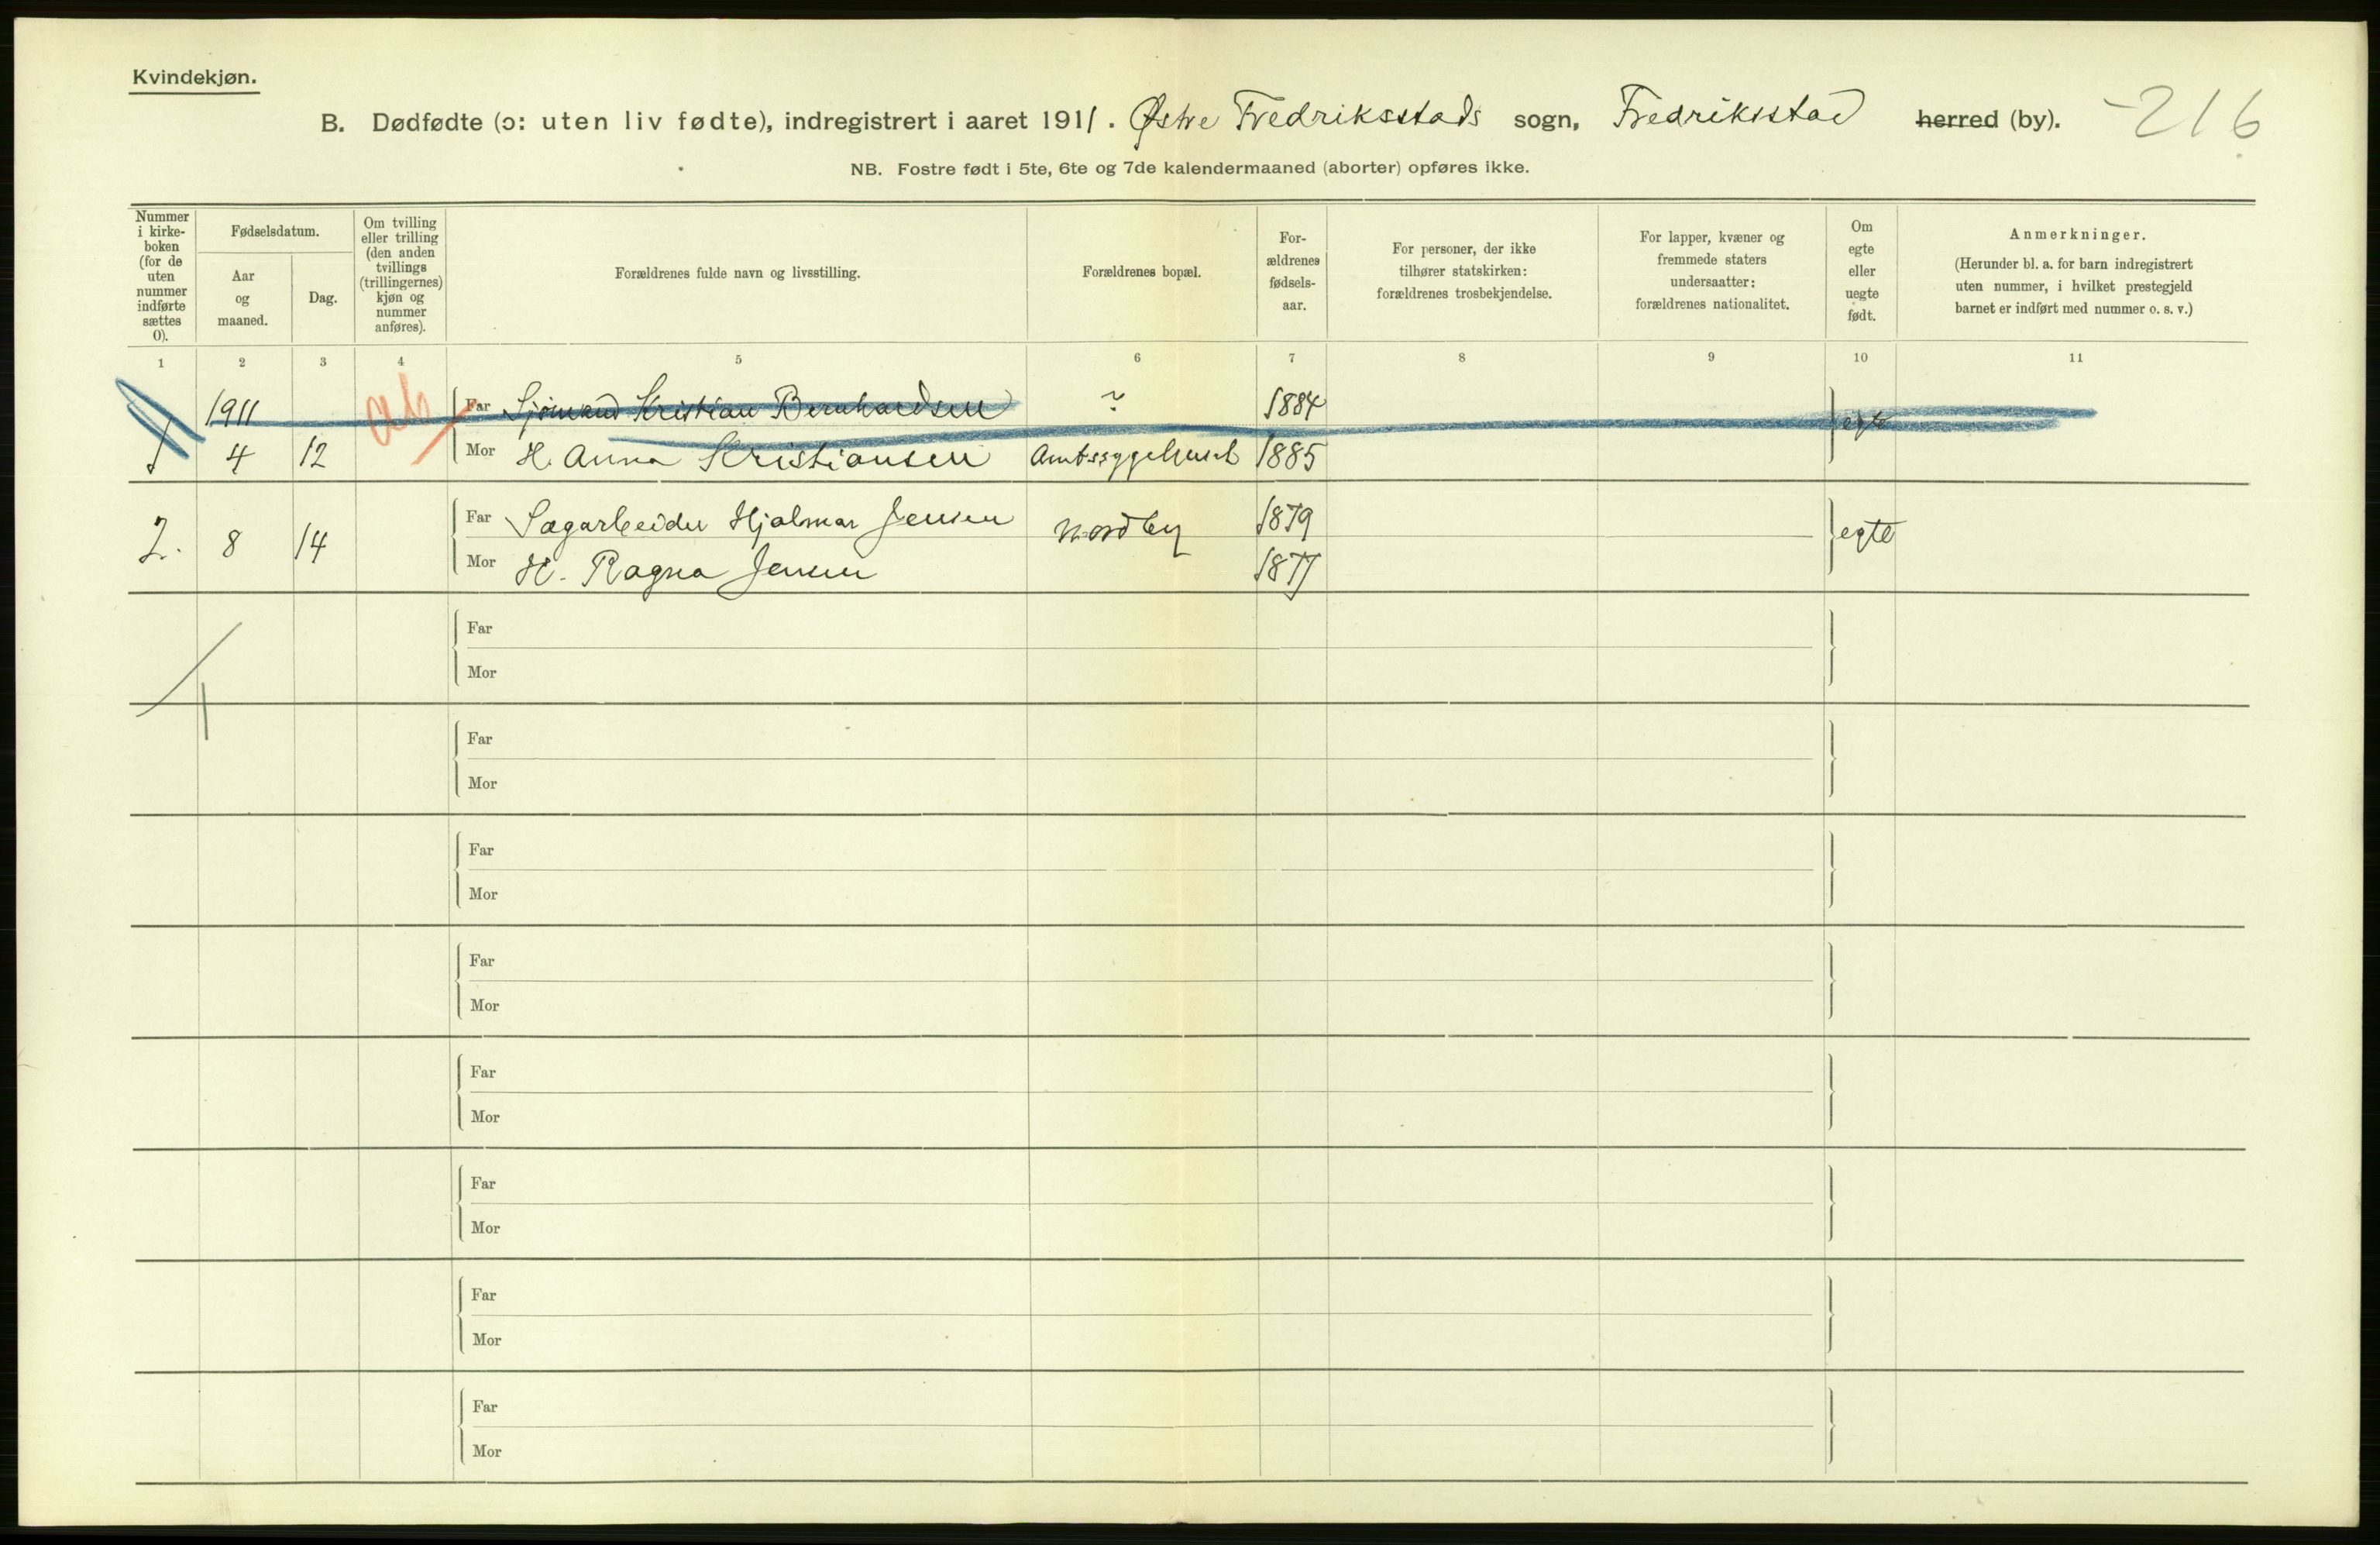 Kvindekjøn.
B. Dødfødte (ɔ: uten liv fødte), indregistrert i aaret 1911. Østre Fredriksstads sogn, Fredriksstad herred (by). 216
NB. Fostre født i 5te, 6te og 7de kalendermaaned (aborter) opføres ikke.
Nummer i kirke-boken (for de uten nummer indførte sættes 0).
Fødselsdatum.
Aar og maaned.
Dag.
Om tvilling eller trilling (den anden tvillings (trillingernes) kjøn og nummer anføres).
Forældrenes fulde navn og livsstilling.
Forældrenes bopæl.
For-ældrenes fødsels-aar.
For personer, der ikke tilhører statskirken: forældrenes trosbekjendelse.
For lapper, kvæner og fremmede staters undersaatter: forældrenes nationalitet.
Om egte eller uegte født.
Anmerkninger.
(Herunder bl. a. for barn indregistrert uten nummer, i hvilket prestegjeld barnet er indført med nummer o. s. v.)
1 2 3 4 5 6 7 8 9 10 11
1911 ab Far Sjømand Kristian Bernhardsen ? 1884 egte
1 4 12 Mor H. Anna Kristiansen Amtssygehuset 1885
Far Sagarbeider Hjalmar Jensen Nordby 1879
2. 8 14 egte
Mor H. Ragna Jensen 1877
Far
Mor
Far
Mor
Far
Mor
Far
Mor
Far
Mor
Far
Mor
Far
Mor
Far
Mor